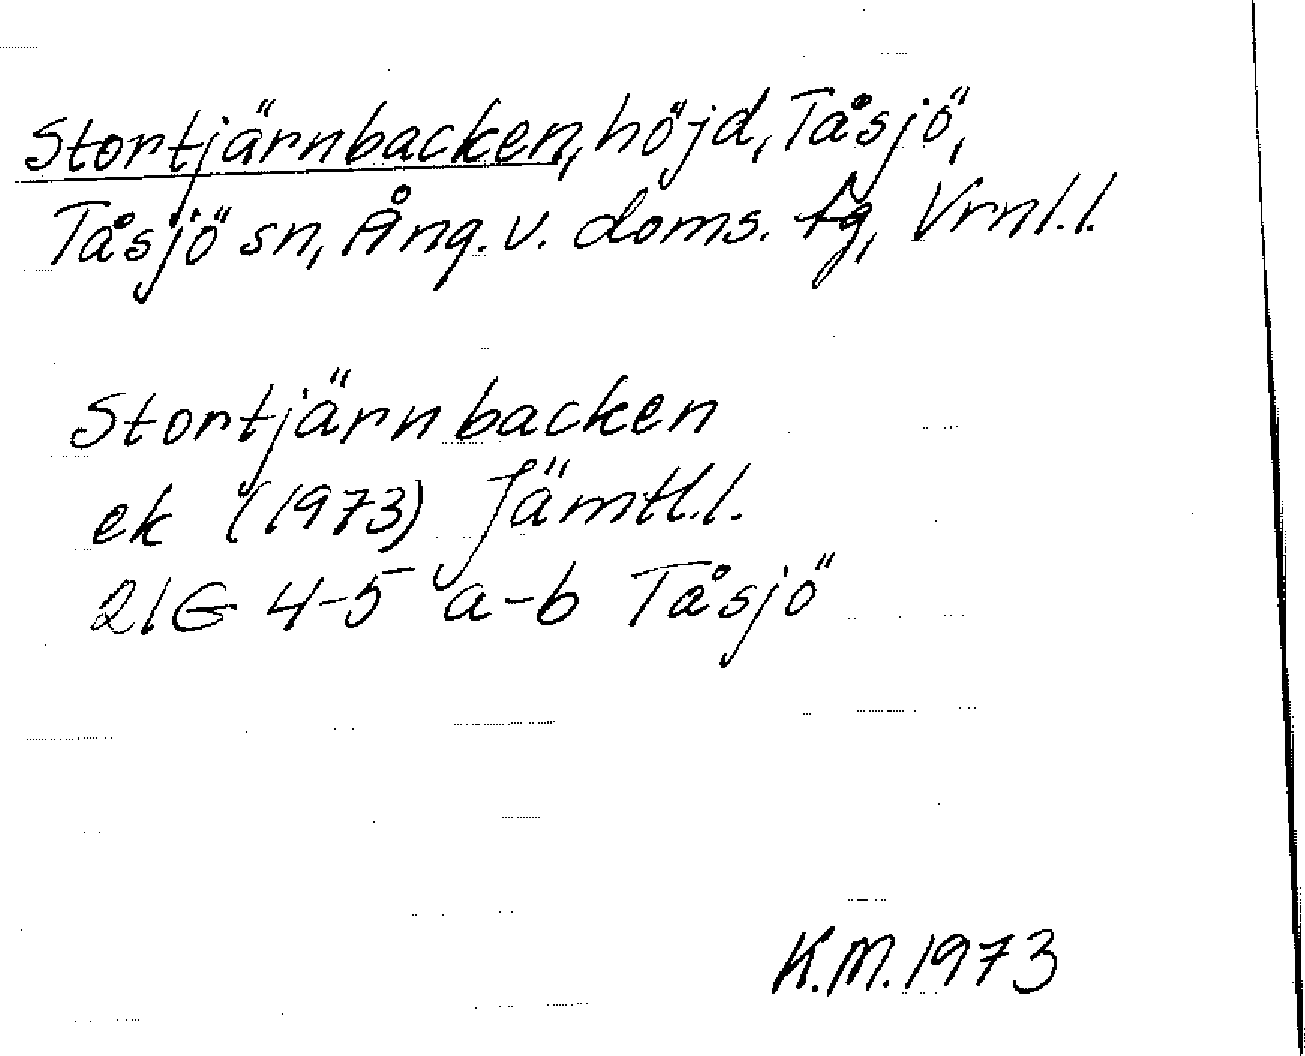 Stortjärnbacken, höjd, Tåsjö,
Tåsjö sn, Ång. v. doms. fg, Vrnl.l.
Stortjärnbacken
ek (1973) Jämtl.l.
21G 4-5 a-b Tåsjö
K.M. 1973